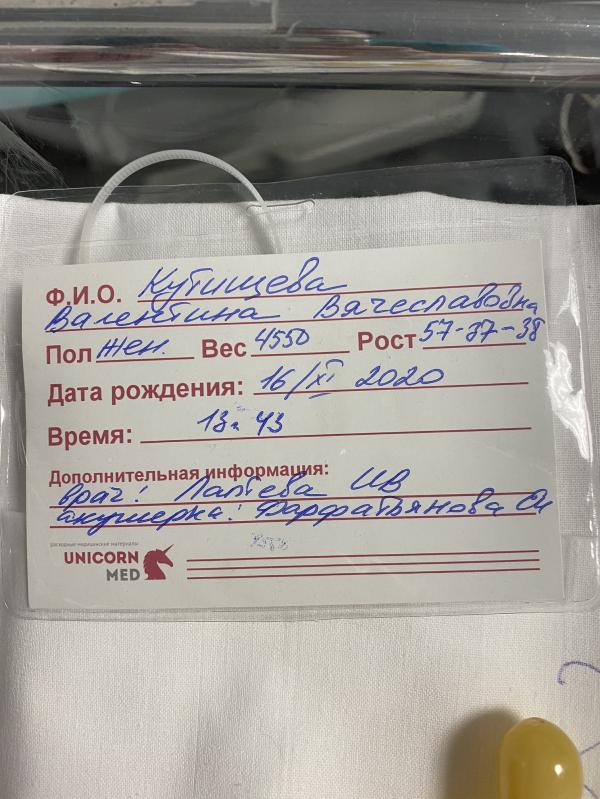 Ф.И.О. Кутищева
Валентина Вячеславовна
Пол жен. Вес 4550 Рост 57-37-38
Дата рождения: 16/XI 2020
Время: 13ч 43
Дополнительная информация:
врач: Лаптева ИВ
акушерка: Фарфатьянова
расходные медицинские материалы
UNICORN
MED